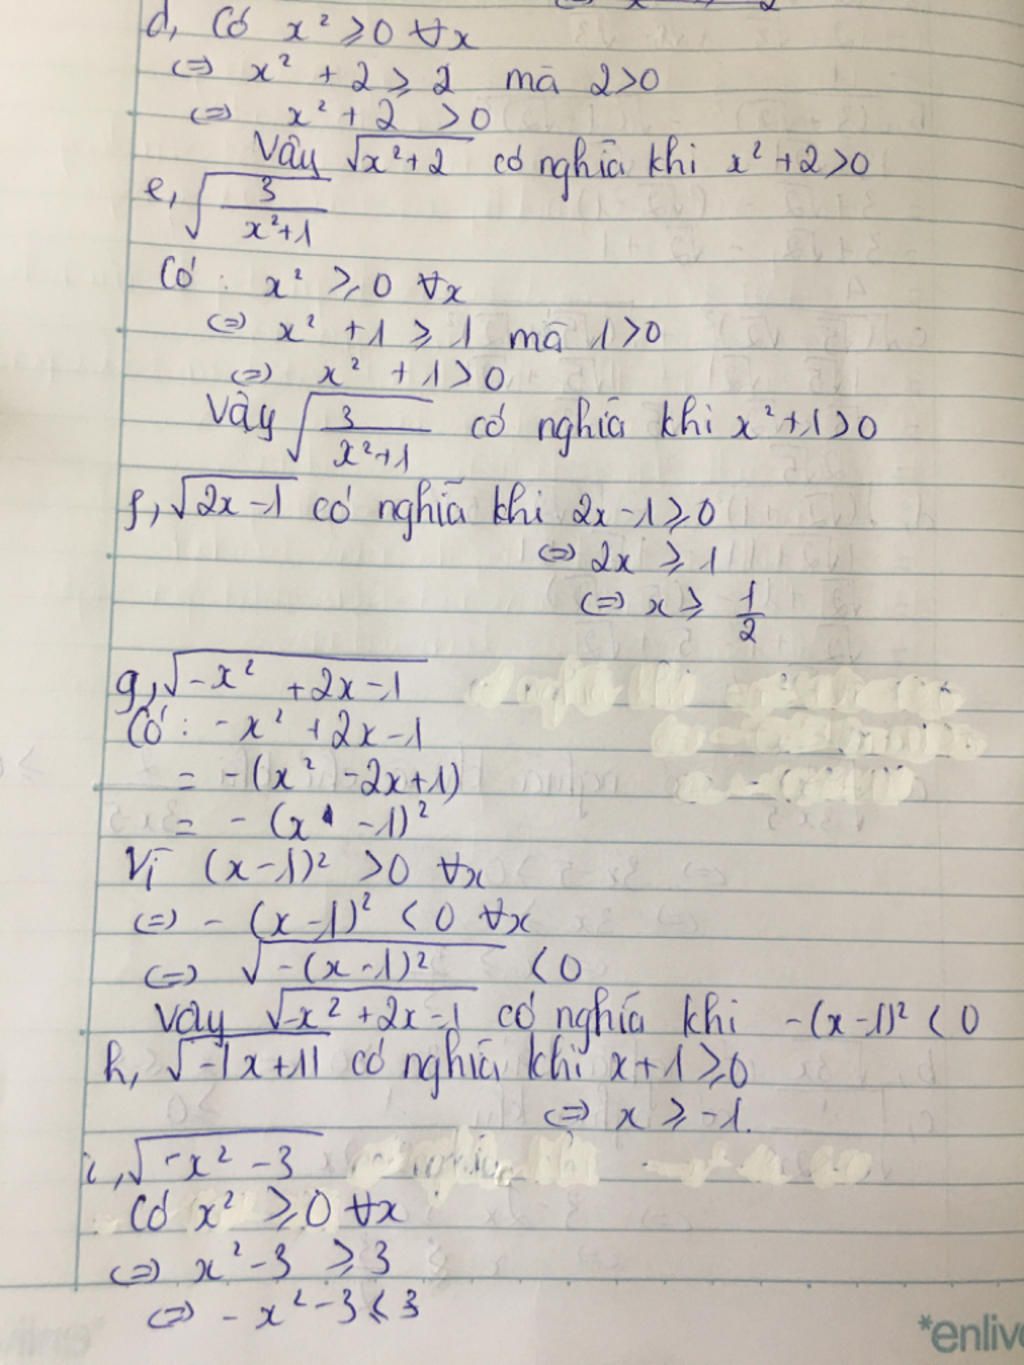 d, Có x² ≥ 0 ∀x
⇔ x² + 2 ≥ 2 mà 2>0
⇔ x² + 2 >0
Vậy √x²+2 có nghĩa khi x²+2>0
e, √3/x²+1
Có : x² ≥ 0 ∀x
⇔ x² +1 ≥ 1 mà 1>0
⇔ x² +1>0
Vậy √3/x²+1 có nghĩa khi x²+1>0
f, √2x-1 có nghĩa khi 2x-1≥0
⇔ 2x ≥ 1
⇔ x ≥ 1/2
g, √-x² +2x-1
Có : -x² +2x-1
= -(x² -2x+1)
= -(x -1)²
Vì (x-1)² >0 ∀x
⇔ -(x-1)² <0 ∀x
⇔ √-(x-1)² <0
Vậy √-x²+2x-1 có nghĩa khi -(x-1)² <0
h, √-|x+1| có nghĩa khi x+1≥0
⇔ x ≥ -1.
i, √-x² -3
Có x² ≥ 0 ∀x
⇔ x² -3 ≥ 3
⇔ -x² -3 ≤ 3
*enliv